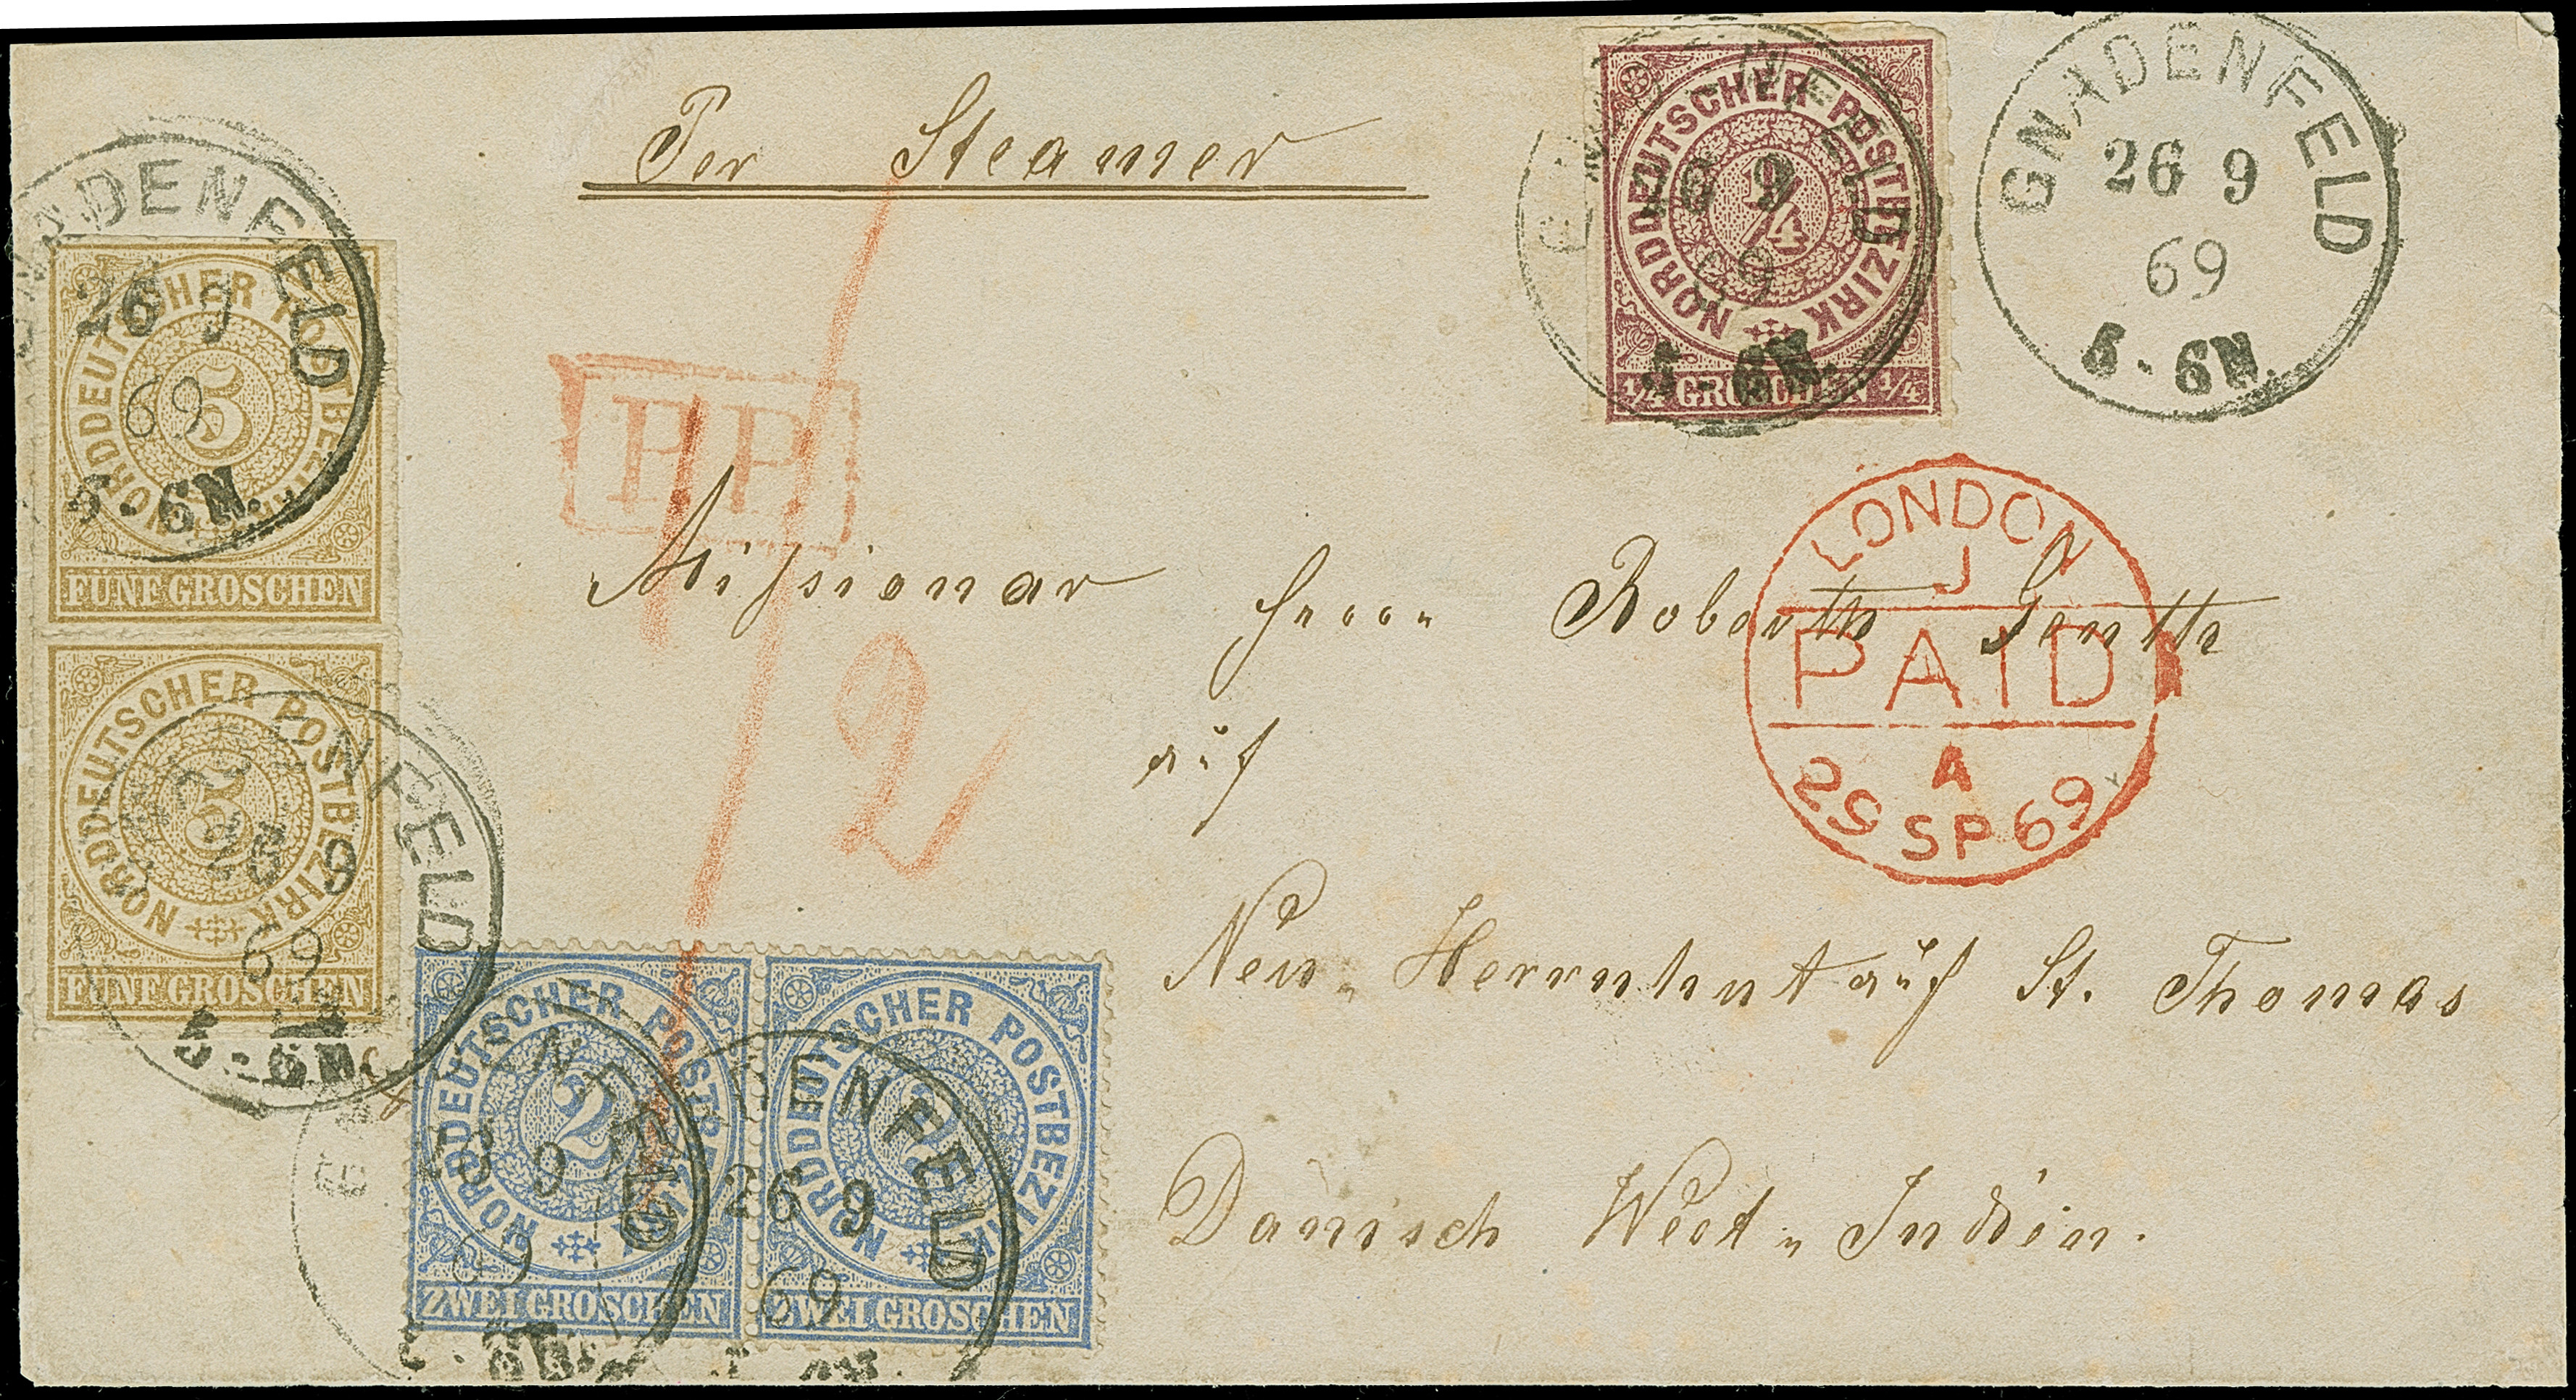 Per Steamer
GNADENFELD
26 9
69
5-6N.
NORDDEUTSCHER POSTBEZIRK
1/4
1/4 GROSCHEN 1/4
GNADENFELD
26 9
69
5-6N.
GNADENFELD
26 9
69
5-6N.
NORDDEUTSCHER POSTBEZIRK
5
FÜNF GROSCHEN
PP
1/2
LONDON
J
PAID
A
29 SP 69
Missionar Herrn
auf
GNADENFELD
26 9
69
5-6N.
NORDDEUTSCHER POSTBEZIRK
5
FÜNF GROSCHEN
Neu-Herrnhut auf St. Thomas
NORDDEUTSCHER POSTBEZIRK
2
ZWEI GROSCHEN
NORDDEUTSCHER POSTBEZIRK
2
ZWEI GROSCHEN
26 9
69
DENFELD
26 9
69
Dänisch West-Indien.